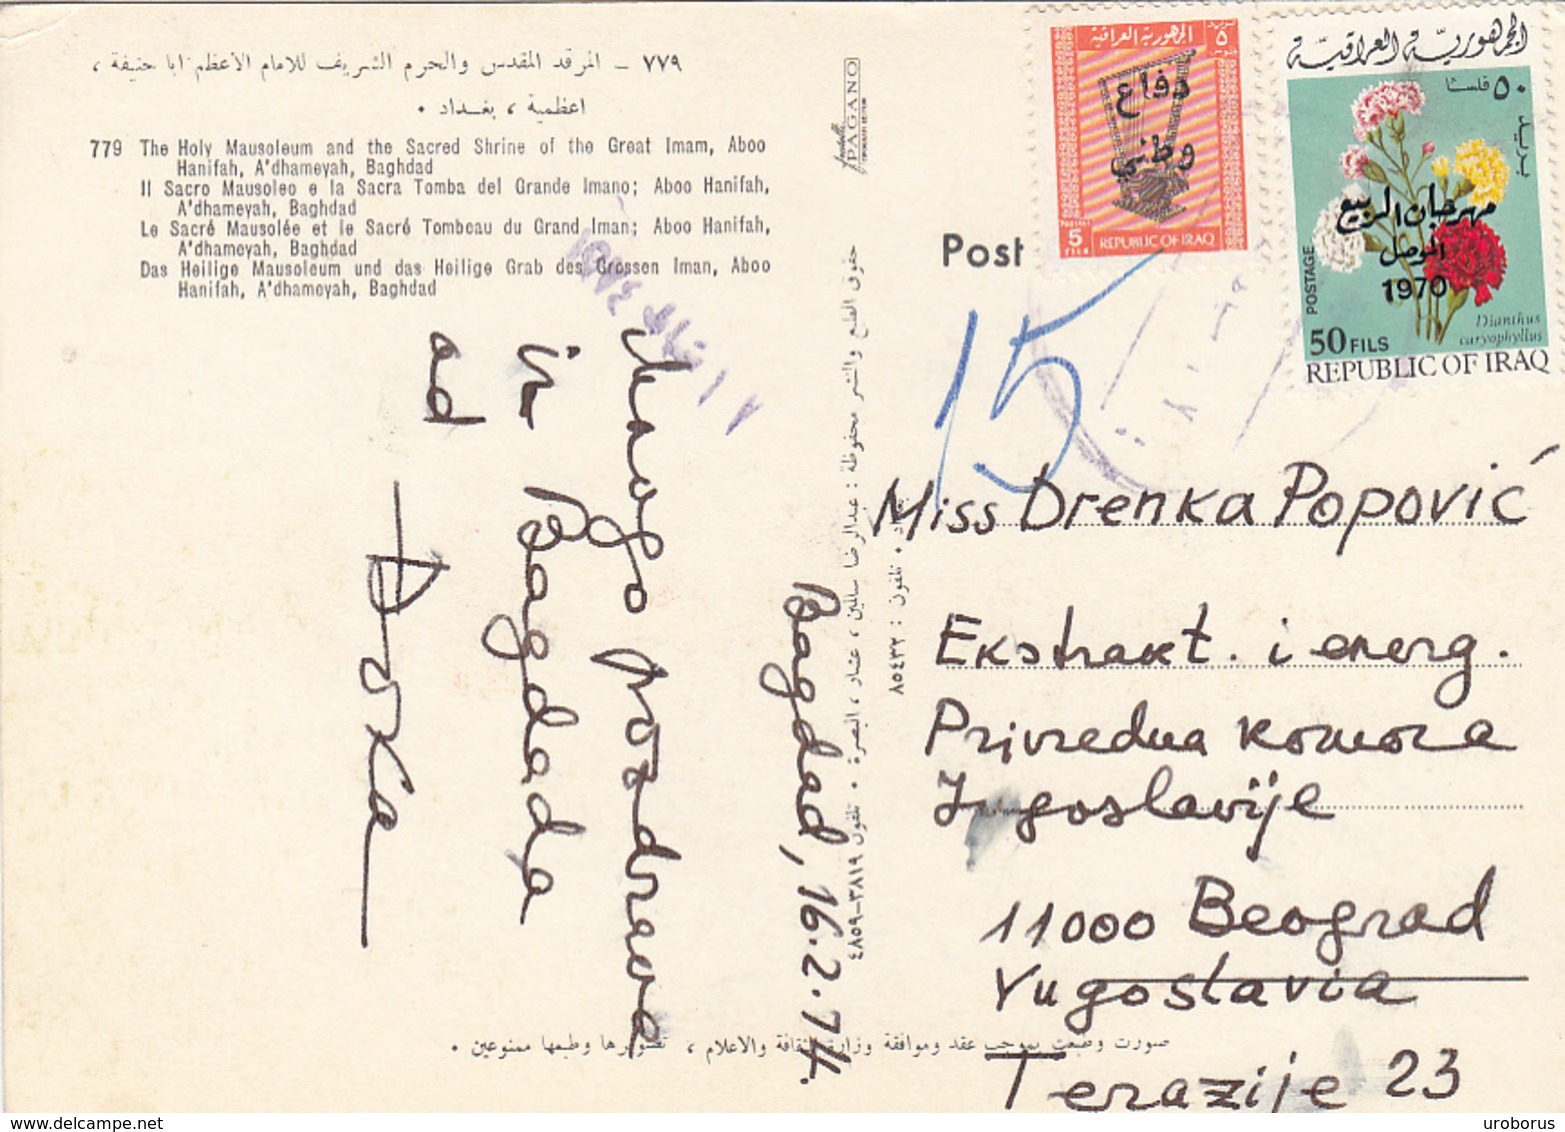 ٧٧٩ - المرقد المقدس والحرم الشريف للامام الاعظم ابا حنيفة ،
اعظمية ، بغداد ٠
779 The Holy Mausoleum and the Sacred Shrine of the Great Imam, Aboo
Hanifah, A'dhameyah, Baghdad
Il Sacro Mausoleo e la Sacra Tomba del Grande Imano; Aboo Hanifah,
A'dhameyah, Baghdad
Le Sacré Mausolée et le Sacré Tombeau du Grand Iman; Aboo Hanifah,
A'dhameyah, Baghdad
Das Heilige Mausoleum und das Heilige Grab des Grossen Iman, Aboo
Hanifah, A'dhameyah, Baghdad
Bagdad, 16.2.74.
Mnogo pozdrava
iz Bagdada
od
Duška
PAGANO
حقوق الطبع والنشر محفوظة : عبدالرضا سالمين ، عشار ، البصرة ٠ تلفون ٣٨١٩-٤٨٥٩
تلفون : ٨٥٤٣٢
صورت وطبعت بموجب عقد وموافقة وزارة الثقافة والاعلام ، تصويرها وطبعها ممنوعين ٠
Post
15
الجمهورية العراقية
٥
دفاع
وطني
5
REPUBLIC OF IRAQ
الجمهورية العراقية
٥٠ فلسا
بريد
مهرجان الربيع
الموصل
1970
POSTAGE
Dianthus
caryophyllus
50 FILS
REPUBLIC OF IRAQ
Miss Drenka Popović
Ekstrakt. i energ.
Privredna komora
Jugoslavije
11000 Beograd
Yugoslavia
Terazije 23
uroborus